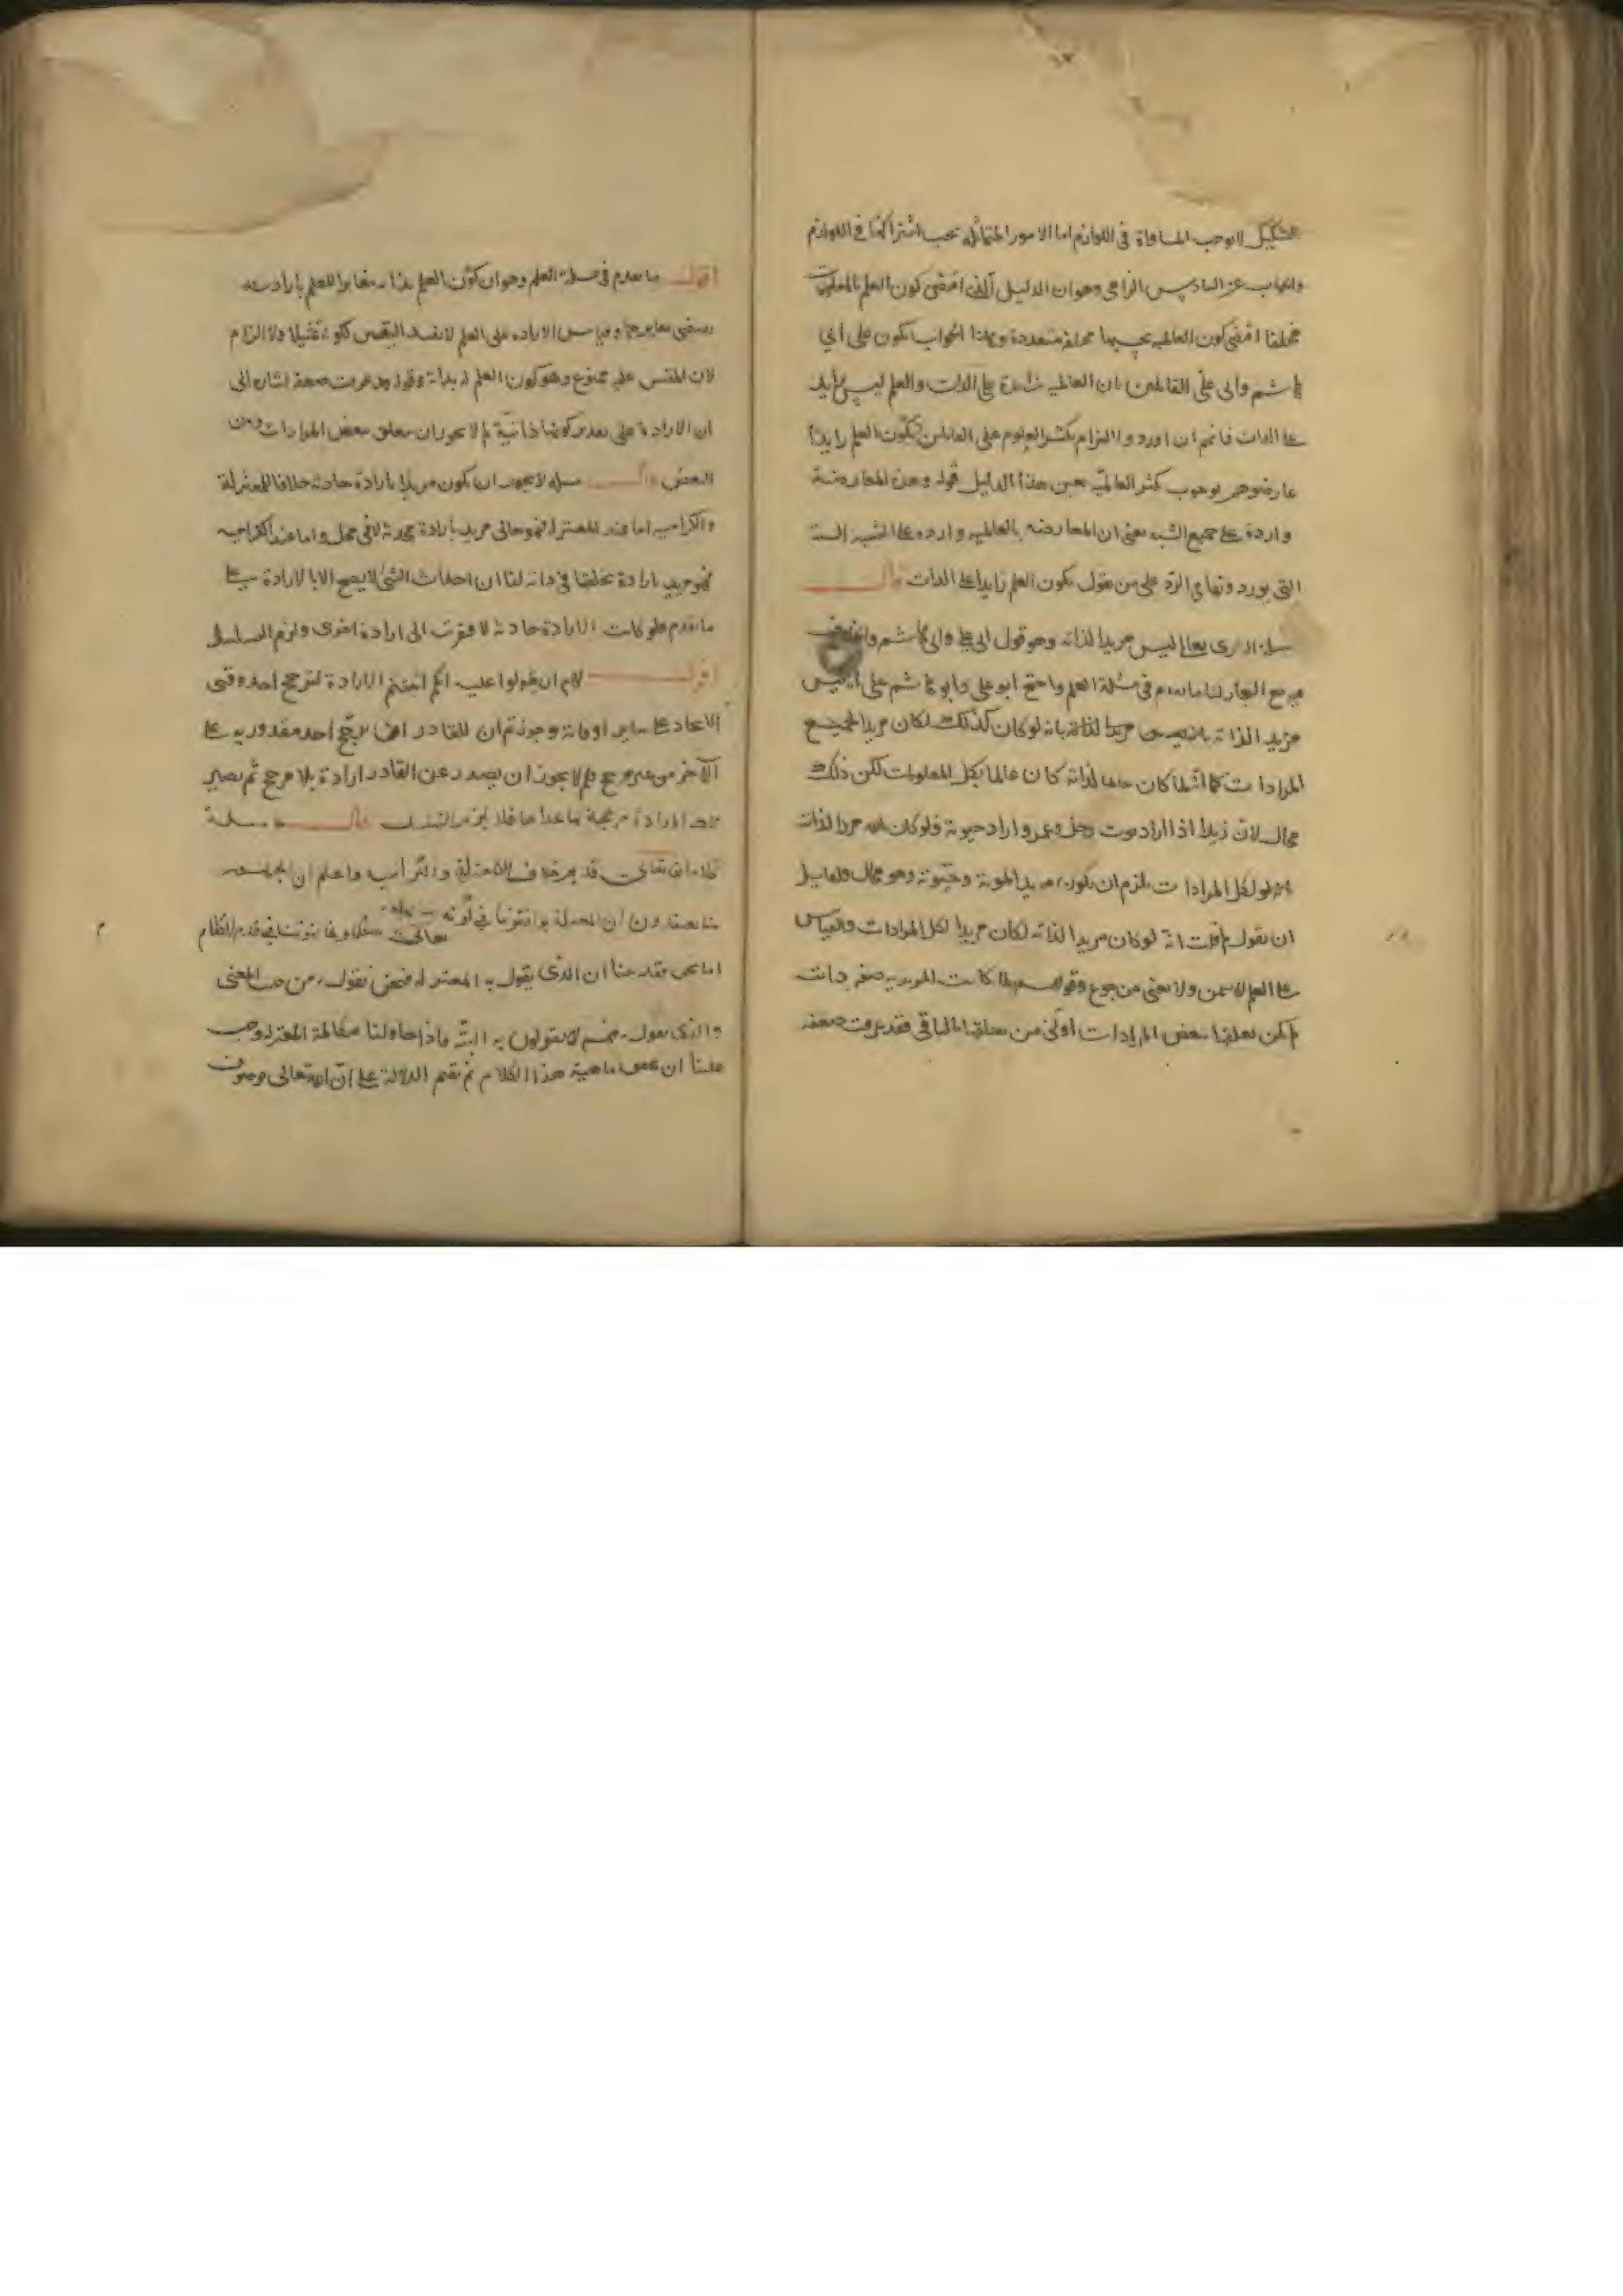 التشكيك لا يوجب المساواة في اللوازم اما الامور المتماثله يجب اشتراكها في اللوازم
واجاب عن السادس الزامي وهو ان الدليل الذي اقتضى كون العلم بالمعلومات
مختلفا اقتضى كون العالميه بحسبها مختلفة متعددة وهذا الجواب يكون على ابي
هاشم وابي علي القائلين بان العالمية زائدة على الذات والعلم ليس بزايد
على الذات فانهم ان اوردوا التزام تكثر العلوم على القائلين بكون العلم زايدا
عارضوهم بوجوب تكثر العالمية بعين هذا الدليل قوله وهذه المعارضة
واردة على جميع الشبه يعني ان المعارضه بالعالميه واردة على الشبه الست
التي يوردونها في الرد على من يقول بكون العلم زايدا على الذات قال
مسئلة الباري تعالى ليس مريدا لذاته وهو قول ابي علي وابي هاشم واختلف
مع النجار لنا ما تقدم في مسئلة العلم واحتج ابو علي وابو هاشم على انه ليس
مريدا لذاته بانه لو كان كذلك لكان مريدا لجميع
المرادات كما انه لما كان عالما لذاته كان عالما بكل المعلومات لكن ذلك
محال لان زيدا اذا اراد موت رجل وعمرو اراد حيوته فلو كان الله مريدا لذاته
لكل المرادات يلزم ان يكون مريدا لموته وحيوته وهو محال ولقايل
ان يقول لم قلت انه لو كان مريدا لذاته لكان مريدا لكل المرادات والقياس
على العلم لا يسمن ولا يغني من جوع وقولهم لما كانت المريديه صفة ذات
لم يكن تعلقها ببعض المرادات اولى من تعلقها بالباقي فقد عرفت ضعفه
اقول ما تقدم في مسئلة العلم وهو ان كون العلم بذاته مغايرا للعلم بارادته
يقتضي تغايرهما وقياس الاراده على العلم لا يفيد اليقين لكونه تمثيلا ولا الزام
لان المقيس عليه ممنوع وهو كون العلم لذاته وقوله قد عرفت ضعفه اشارة الى
ان الارادة على تقدير كونها ذاتية لم لا يجوز ان يتعلق ببعض المرادات دون
البعض قال مسئلة لا يجوز ان يكون مريدا بارادة حادثة خلافا للمعتزلة
والكراميه اما عند المعتزلة فهو تعالى مريد بارادة محدثة لا في محل واما عند الكراميه
فهو مريد بارادة يخلقها في ذاته لنا ان احداث الشي لا يصح الا بالارادة على
ما تقدم فلو كانت الارادة حادثة لافتقرت الى ارادة اخرى ولزم التسلسل
اقول لهم ان يقولوا عليه انكم اثبتم الارادة لترجح احد وقتي
الايجاد على ساير اوقاته وجوزتم ان للقادر ان يرجح احد مقدوريه على
الاخر من غير مرجح فلم لا يجوز ان يصدر عن القادر ارادة بلا مرجح ثم يصير
تلك الارادة مرجحة ما عداها فلا يلزم التسلسل قال مسئلة
كلام الله تعالى قديم خلافا للمعتزلة والكرامية واعلم ان الجمهور
منا يعتقدون ان المعتزلة يوافقوننا في كونه تعالى متكلما ويخالفوننا في قدم الكلام
اما نحن فقد بينا ان الذي يقول به المعتزله فنحن نقول به من حيث المعنى
والذي نقول به فهم لا يقولون به البتة فاذا حاولنا مخالفة المعتزلة وجب
علينا ان نبين ماهية هذا الكلام ثم نقيم الدلالة على ان الله تعالى موصوف